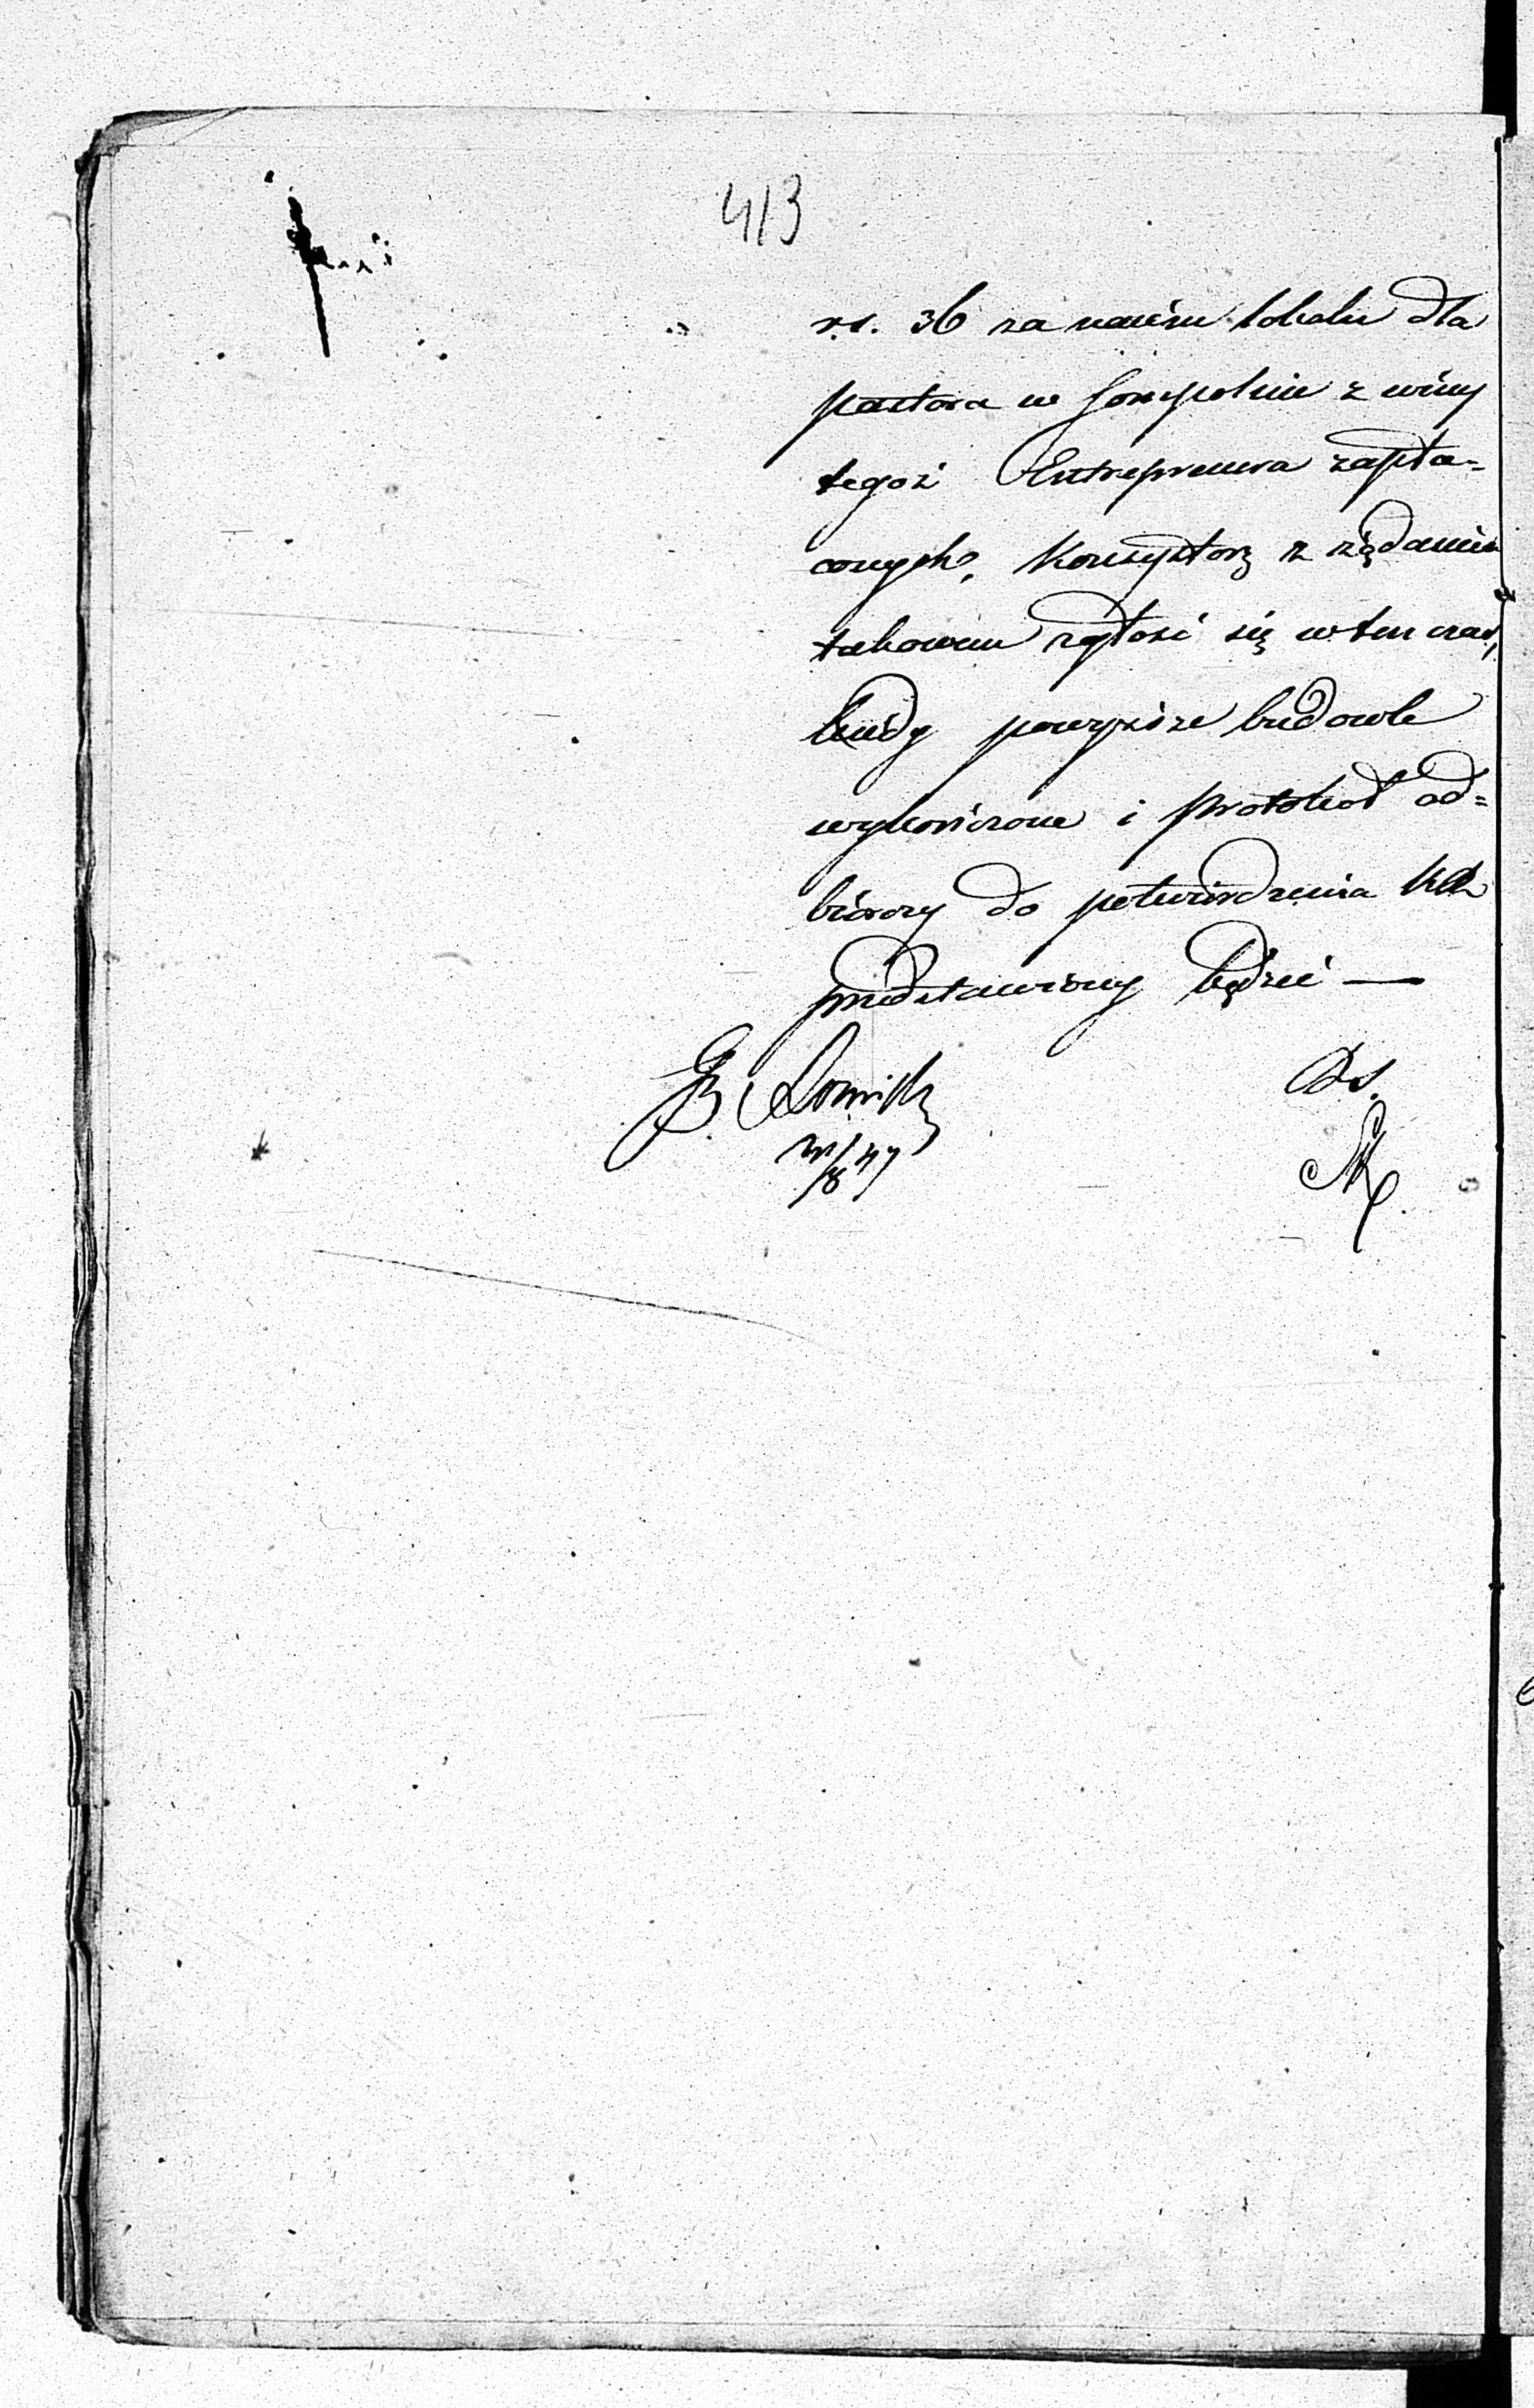 413
r.s. 36 za naiem lokalu dla
pastora w Sompolnie z winy
tegoż Entreprenera zapła=
conych, Konsystorz z żądaniem
takowem zgłosi się w ten czas,
kiedy powyższe budowle
wykończone i protokoł od=
biorczy do potwierdzenia KR
przedstawiony będzie —